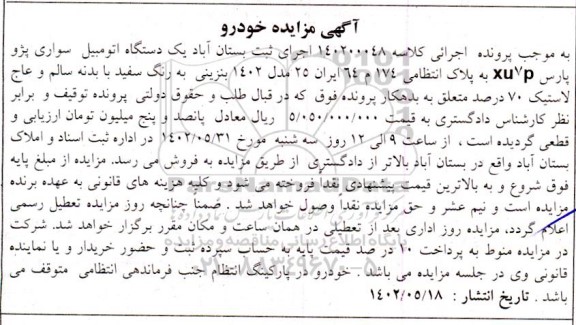 آگهی مزایده خودرو
به موجب پرونده اجرائی کلاسه ۱۴۰۲۰۰۰۴۸ اجرای ثبت بستان آباد یک دستگاه اتومبیل سواری پژو
پارس xu۷p به پلاک انتظامی ۱۷۴ م ۶۴ ایران ۲۵ مدل ۱۴۰۲ بنزینی به رنگ سفید با بدنه سالم و عاج
لاستیک ۷۰ درصد متعلق به بدهکار پرونده فوق که در قبال طلب و حقوق دولتی پرونده توقیف و برابر
نظر کارشناس دادگستری به قیمت ۵/۰۵۰/۰۰۰/۰۰۰ ریال معادل پانصد و پنج میلیون تومان ارزیابی و
قطعی گردیده است ، از ساعت ۹ الی ۱۲ روز سه شنبه مورخ ۱۴۰۲/۰۵/۳۱ در اداره ثبت اسناد و املاک
بستان آباد واقع در بستان آباد بالاتر از دادگستری از طریق مزایده به فروش می رسد. مزایده از مبلغ پایه
فوق شروع و به بالاترین قیمت پیشنهادی نقداً فروخته می شود و کلیه هزینه های قانونی به عهده برنده
مزایده است و نیم عشر و حق مزایده نقداً وصول خواهد شد . ضمناً چنانچه روز مزایده تعطیل رسمی
اعلام گردد، مزایده روز اداری بعد از تعطیلی در همان ساعت و مکان مقرر برگزار خواهد شد. شرکت
در مزایده منوط به پرداخت ۱۰ در صد قیمت پایه به حساب سپرده ثبت و حضور خریدار و یا نماینده
قانونی وی در جلسه مزایده می باشد . خودرو در پارکینگ انتظام جنب فرماندهی انتظامی متوقف می
باشد . تاریخ انتشار : ۱۴۰۲/۰۵/۱۸